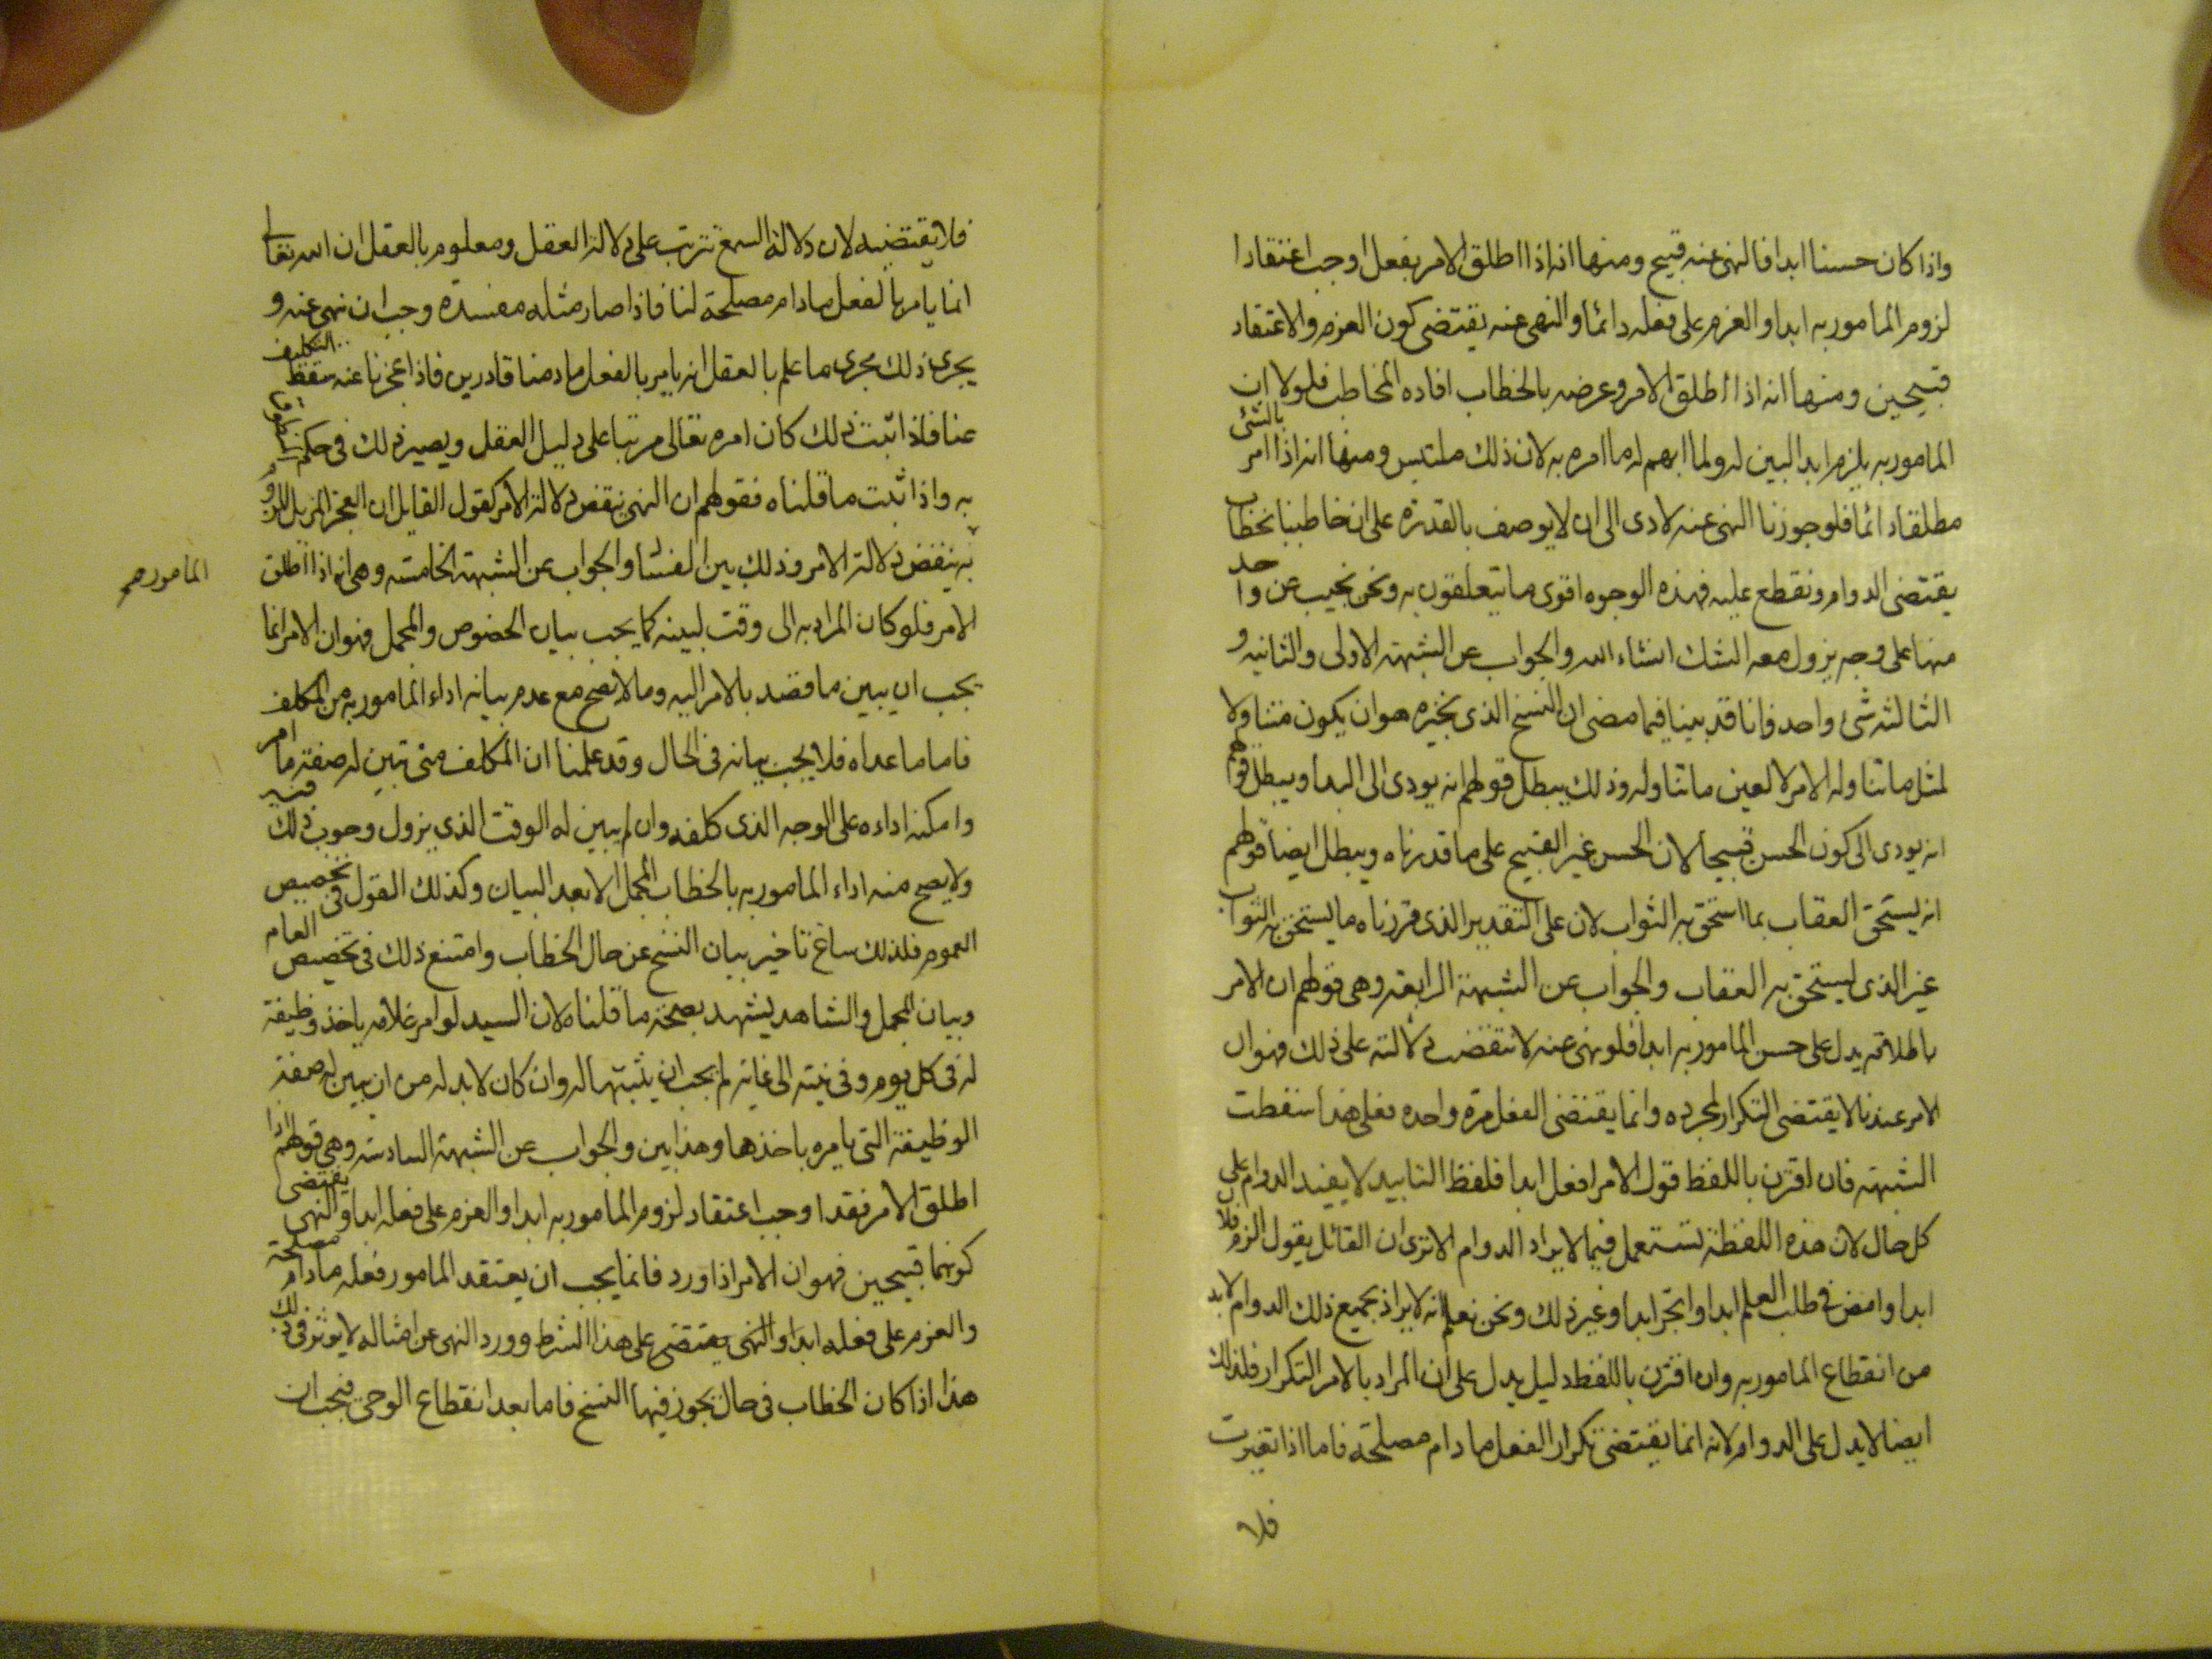 واذا كان حسنا ابدا فالنهى عنه قبيح ومنها انه اذا اطلق الامر بفعل اوجب اعتقادا
لزوم المامور به ابدا والعزم على فعله دائما والنهى عنه يقتضى كون العزم والاعتقاد
قبيحين ومنها انه اذا اطلق الامر وعرضه بالخطاب افاده المخاطب فلولا ان
المامور به يلزم ابدا لبين له ولما ابهم له ما امره به لان ذلك ملتبس ومنها انه اذا امر بالشئ
مطلقا دائما فلو جوزنا النهى عنه لادى الى ان لا يوصف بالقدرة على ان خاطبنا بخطاب
يقتضى الدوام ونقطع عليه فهذه الوجوه اقوى ما يتعلقون به ونحن نجيب عن واحد
منها على وجه يزول معه الشك انشاء الله والجواب عن الشبهة الاولى والثانيه و
الثالثه شئ واحد فانا قد بينا فيما مضى ان النسخ الذى نجيزه هو ان يكون متناولا
لمثل ما تناوله الامر لا لعين ما تناوله وذلك يبطل قولهم انه يودى الى البدا ويبطل قولهم
انه يودى الى كون الحسن قبيحا لان الحسن غير القبيح على ما قدرناه ويبطل ايضا قولهم
انه يستحق العقاب بما استحق به الثواب لان على التقدير الذى قررناه ما يستحق به الثواب
غير الذى يستحق به العقاب والجواب عن الشبهة الرابعة وهى قولهم ان الامر
باطلاقه يدل على حسن المامور به ابدا فلو نهى عنه لانتقضت دلالته على ذلك فهو ان
الامر عندنا لا يقتضى التكرار لمجرده وانما يقتضى الفعل مرة واحده فعلى هذا سقطت
الشبهة فان اقترن باللفظ قول الامر افعل ابدا فلفظ التابيد لا يفيد الدوام على
كل حال لان هذه اللفظة تستعمل فيما لا يراد الدوام الا ترى ان القائل يقول الزم فلانا
ابدا وامض فى طلب العلم ابدا واتجر ابدا وغير ذلك ونحن نعلم انه لا يراد بجميع ذلك الدوام لابد
من انقطاع المامور به وان اقترن باللفظ دليل يدل على ان المراد بالامر التكرار فلذلك
ايضا لا يدل على الدوام لانه انما يقتضى تكرار الفعل ما دام مصلحة فاما اذا تغيرت
فلا
فلا يقتضيه لان دلالة السمع تترتب على دلالة العقل ومعلوم بالعقل ان الله تعالى
انما يامر بالفعل ما دام مصلحة لنا فاذا صار مثله مفسدة وجب ان نهى عنه و
يجرى ذلك مجرى ما علم بالعقل انه يامر بالفعل ما دمنا قادرين فاذا عجزنا عنه سقط التكليف
عنا فاذا ثبت ذلك كان امره تعالى مرتبا على دليل العقل ويصير ذلك فى حكم المنطوق
به واذا ثبت ما قلناه فقولهم ان النهى ينقض دلالة الامر كقول القايل ان العجز المزيل للامر
به ينقض دلالة الامر وذلك بين الفساد والجواب عن الشبهة الخامسه وهى انه اذا اطلق
المامور
الامر فلو كان المراد به الى وقت لبينه كما يجب بيان الخصوص والمجمل فهو ان الامر انما
يجب ان يبين ما قصد بالامر اليه وما لا يصح مع عدم بيانه اداء المامور به من المكلف
فاما ما عداه فلا يجب بيانه فى الحال وقد علمنا ان المكلف متى تبين له صفة ما امر
وامكنه اداءه على الوجه الذى كلفه وان لم يبين له الوقت الذى يزول وجوب ذلك فيه
ولا يصح منه اداء المامور به بالخطاب المجمل الا بعد البيان وكذلك القول فى تخصيص
العموم فلذلك ساغ تاخير بيان النسخ عن حال الخطاب وامتنع ذلك فى تخصيص العام
وبيان المجمل والشاهد يشهد بصحة ما قلناه لان السيد لو امر غلامه ياخذ وظيفة
له فى كل يوم وفى نيته الى غاية لم يجب ان يثبتها له وان كان لابد له من ان يبين له صفة
الوظيفة التى يامره باخذها وهذا بين والجواب عن الشبهة السادسة وهى قولهم اذا
اطلق الامر فقد اوجب اعتقاد لزوم المامور به ابدا والعزم على فعله ابدا والنهى يقتضى
كونهما قبيحين فهو ان الامر اذا ورد فانما يجب ان يعتقد المامور فعله ما دام مصلحة
والعزم على فعله ابدا والنهى يقتضى على هذا الشرط وورد النهى عن امثاله لا يوثر فى ذلك
هذا اذا كان الخطاب فى حال يجوز فيها النسخ فاما بعد انقطاع الوحى فيجب ان